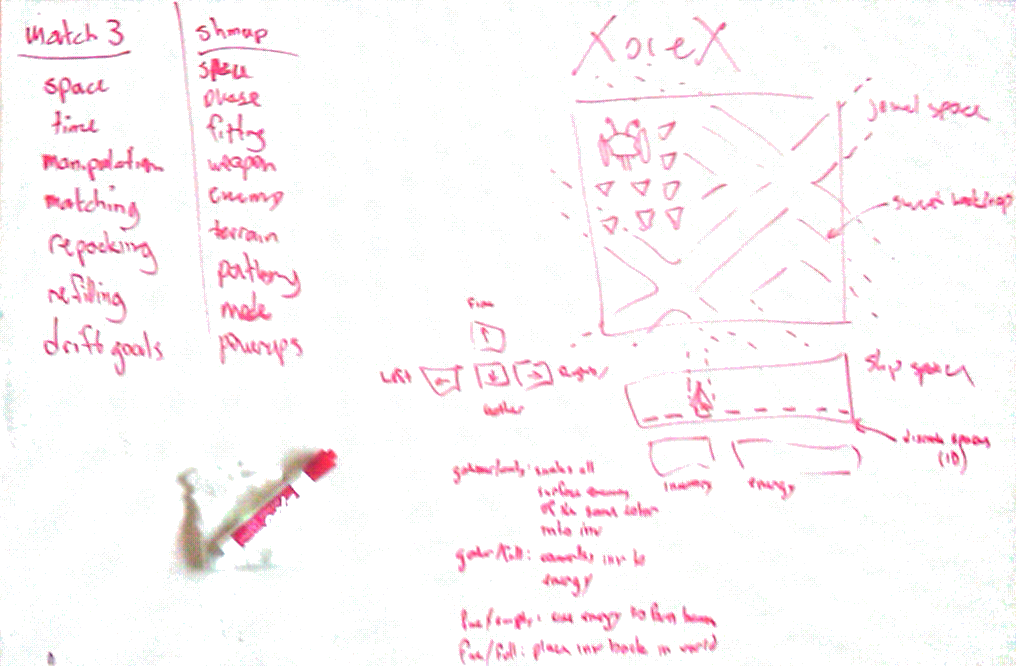 match 3
space
time
manipulation
matching
repacking
refilling
drift goals
shmup
space
phase
firing
weapon
enemy
terrain
patterns
mode
powerups
XoleX
jewel space
swirl backdrop
fire
left
right
gather
ship space
discrete spaces
(1D)
inventory
energy
gather/empty: sucks all
surface enemy
of the same color
into inv
gather/full: converts inv to
energy
fire/empty: use energy to fire beam
fire/full: place inv back in world